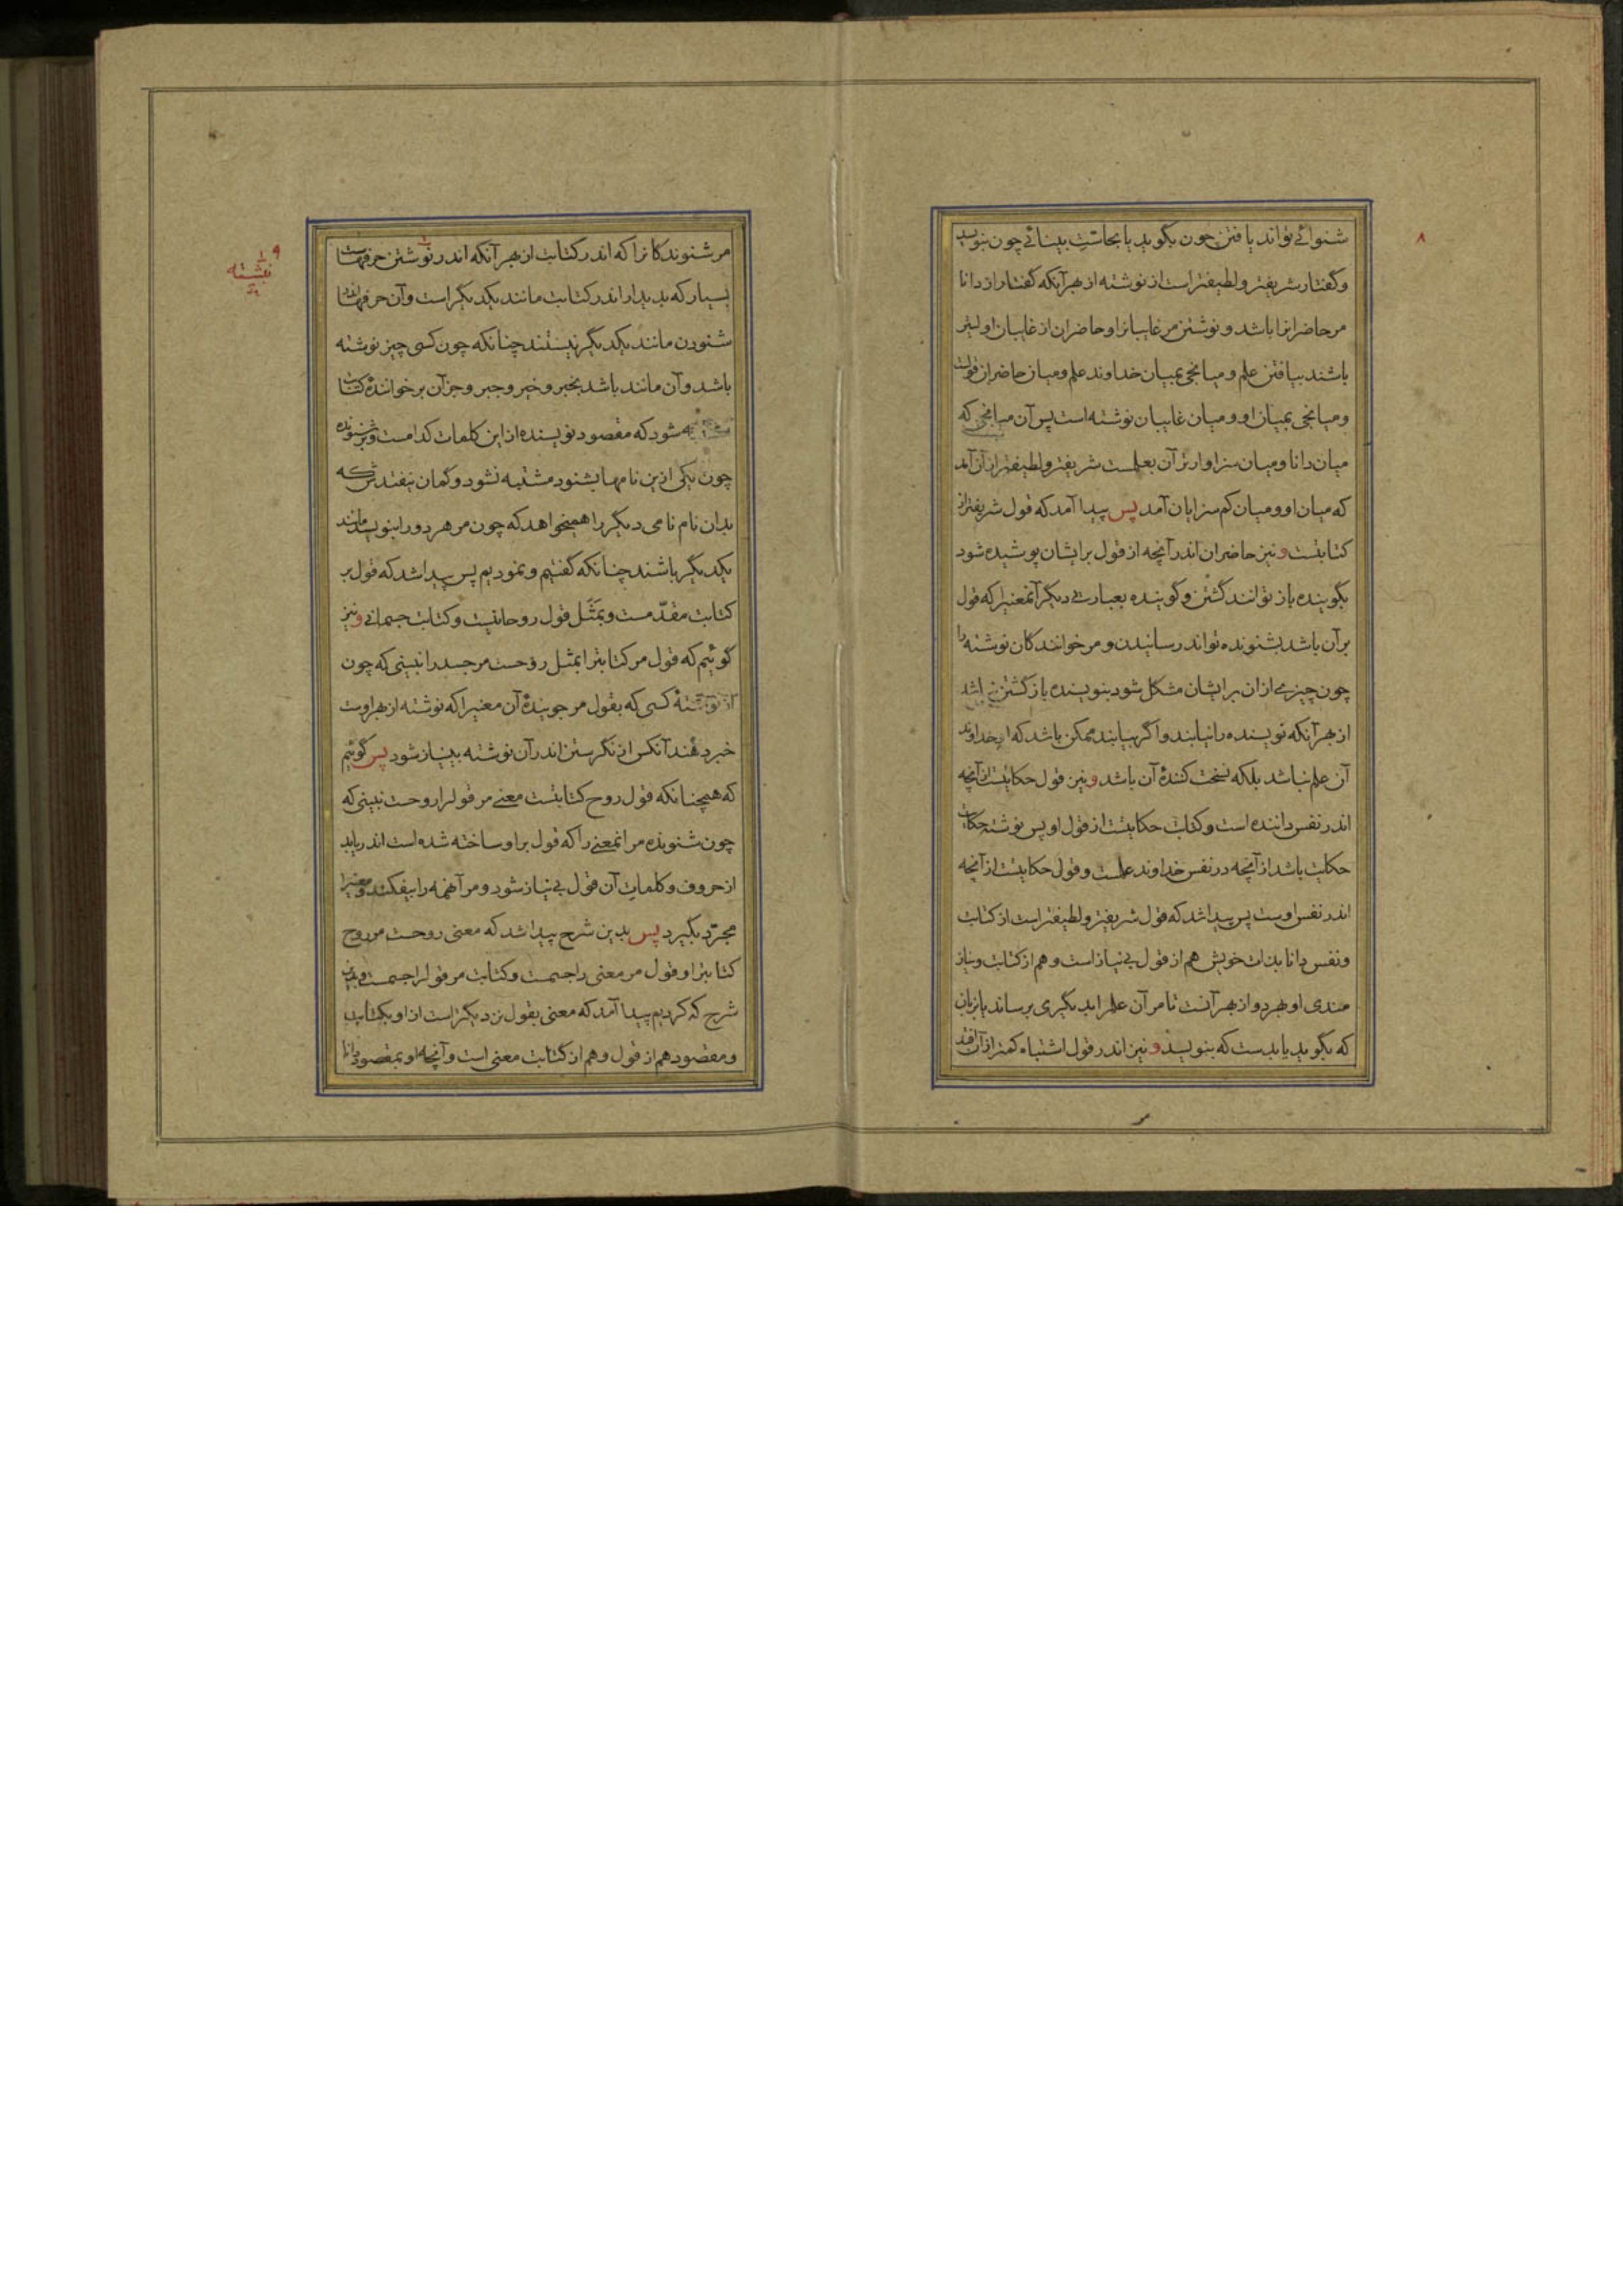 ۸
شنوائی تواند یافتن چون بگوید یا بحاست بینائی چون بنویسد
وگفتار شریفتر ولطیفتر است از نوشته از بهر آنکه گفتار از دانا
مر حاضرانرا باشد و نوشتن مر غایبانرا و حاضران از غایبان اولیتر
باشند بیافتن علم و میانجی بمیان خداوند علم و میان حاضران قولست
ومیانجی بمیان او ومیان غایبان نوشته است پس آن میانجی که
میان دانا و میان سزاوارتر آن بعلمست شریفتر ولطیفتر از آن آمد
که میان او ومیان کم سزایان آمد پس پیدا آمد که قول شریفتر از
کتابتست ونیز حاضران اندر آنچه از قول بر ایشان پوشیده شود
بگوینده باز توانند گشتن و گوینده بعبارتی دیگر آنمعنیرا که قول
بر آن باشد بشنونده تواند رسانیدن و مر خوانندگان نوشته را
چون چیزی از ان بر ایشان مشکل شود بنویسنده باز گشتن نباشد
از بهر آنکه نویسنده را نیابند و اگر بیابند ممکن باشد که خداوند
آن علم نباشد بلکه نسخت کنندهٔ آن باشد ونیز قول حکایتست از آنچه
اندر نفس داننده است و کتابت حکایتست از قول او پس نوشته حکایت
حکایت باشد از آنچه در نفس خداوند علمست و قول حکایتست از آنچه
اندر نفس اوست پس پیدا شد که قول شریفتر ولطیفتر است از کتابت
ونفس دانا بذات خویش هم از قول بی نیاز است و هم از کتابت و نیاز
مندی او بهر دو از بهر آنست تا مر آن علم را بدیگری برساند یا بزبان
که بگوید یا بدست که بنویسد ونیز اندر قول اشتباه کمتر از آن افتد
۹
نبشته
مر شنوندکانرا که اندر کتابت از بهر آنکه اندر نوشتن حرفهاست
بسیار که بدیدار اندر کتابت مانند یکدیگر است و آن حرفها اندر
شنودن مانند یکدیگر نیستند چنانکه چون کسی چیز نوشته
باشد و آن مانند باشد بخبر و خیر و جبر و جز آن بر خوانندهٔ کتابت
شود که مقصود نویسنده از این کلمات کدامست و بر شنونده
چون یکی ازین نامها بشنود مشتبه نشود و گمان نیفتدش که
بدان نام نامی دیگر را همیخواهد که چون مر هر دو را بنویسد مانند
یکدیگر باشند چنانکه گفتیم و نمودیم پس پیدا شد که قول بر
کتابت مقدّمست و بمَثَل قول روحانیست و کتابت جسمانی ونیز
گوئیم که قول مر کتابترا بمثل روحست مر جسد را نبینی که چون
از نوشتهٔ کسی که بقول مر جویندهٔ آن معنیرا که نوشته از بهر اوست
خبر دهد آنکس از نگرستن اندر آن نوشته بینیاز شود پس گوئیم
که همچنانکه قول روح کتابتست معنی مر قولرا روحست نبینی که
چون شنونده مر انمعنی را که قول بر او ساخته شده است اندر یابد
از حروف و کلمات آن قول بی نیاز شود و مر آنهمه را بیفکند ومعنیرا
مجرّد بگیرد پس بدین شرح پیدا شد که معنی روحست مر روح
کتابترا و قول مر معنی را جسمست و کتابت مر قولرا جسمست وبدین
شرح که کردیم پیدا آمد که معنی بقول نزدیکتر است از او بکتابت
ومقصود هم از قول و هم از کتابت معنی است و آنچه او بمقصود دانا